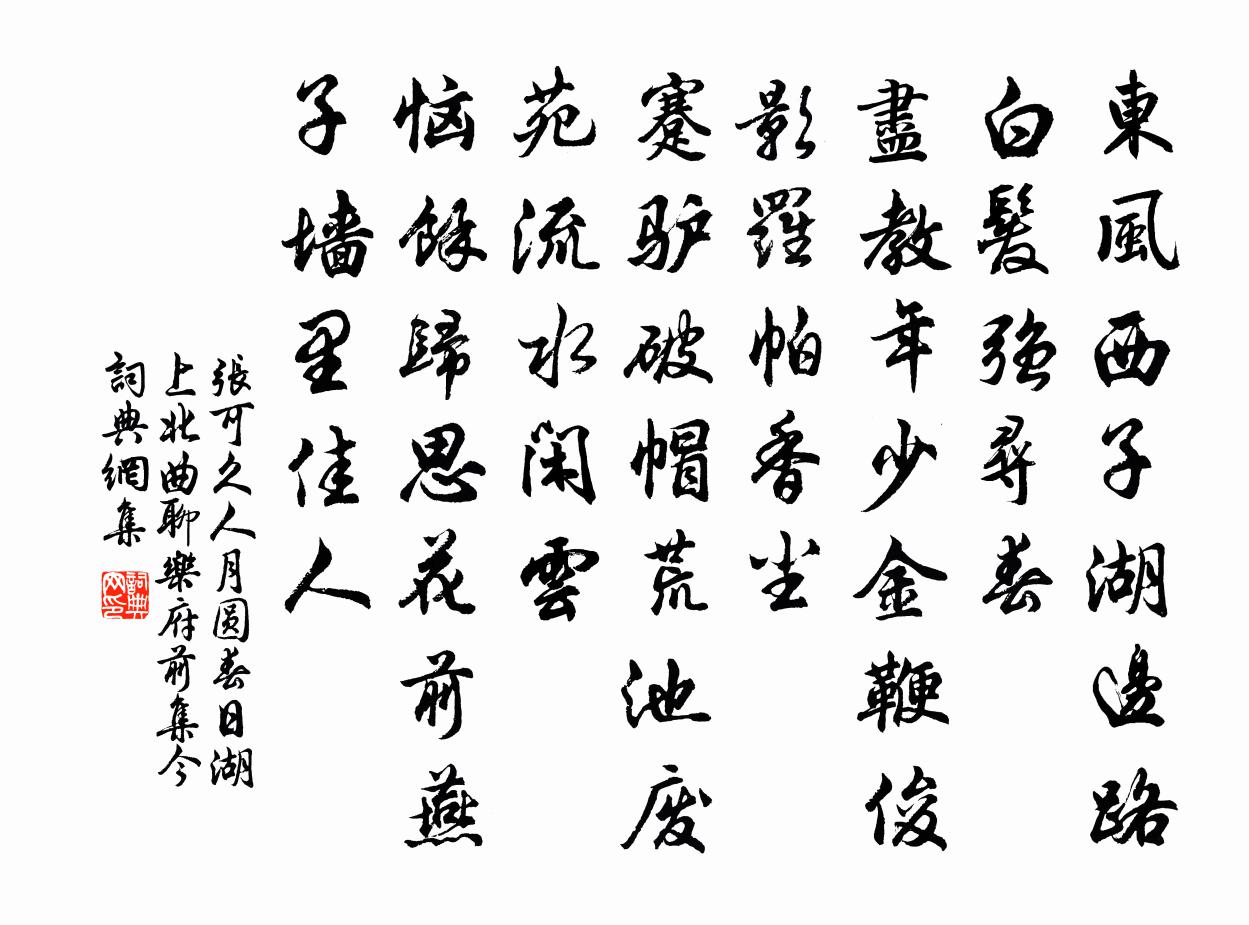 東風西子湖邊路
白髮強尋春
盡教年少金鞭俊
影羅帕香塵
蹇驴破帽荒池废
苑流水闲雲
恼餘歸思花前燕
子墙里佳人
張可久人月圆春日湖
上北曲聊樂府前集今
詞典網集
詞典网印